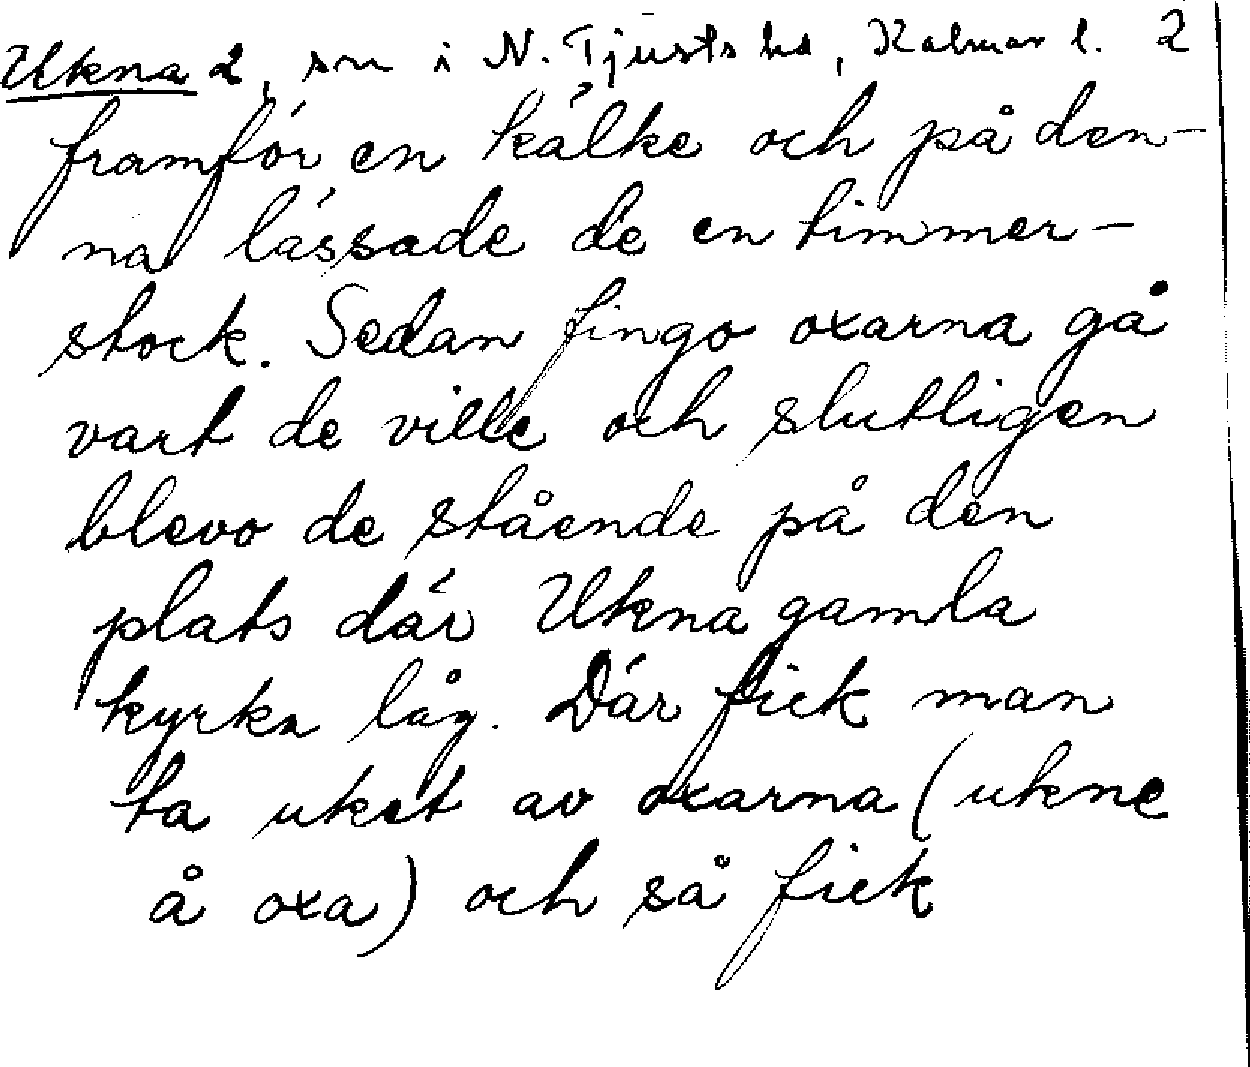 Ukna 2, sn i N. Tjusts hd, Kalmar l. 2
framför en kälke och på den-
na lässade de en timmer-
stock. Sedan fingo oxarna gå
vart de ville och slutligen
blevo de stående på den
plats där Ukna gamla
kyrka låg. Där fick man
ta uket av oxarna (ukne
å oxa) och så fick